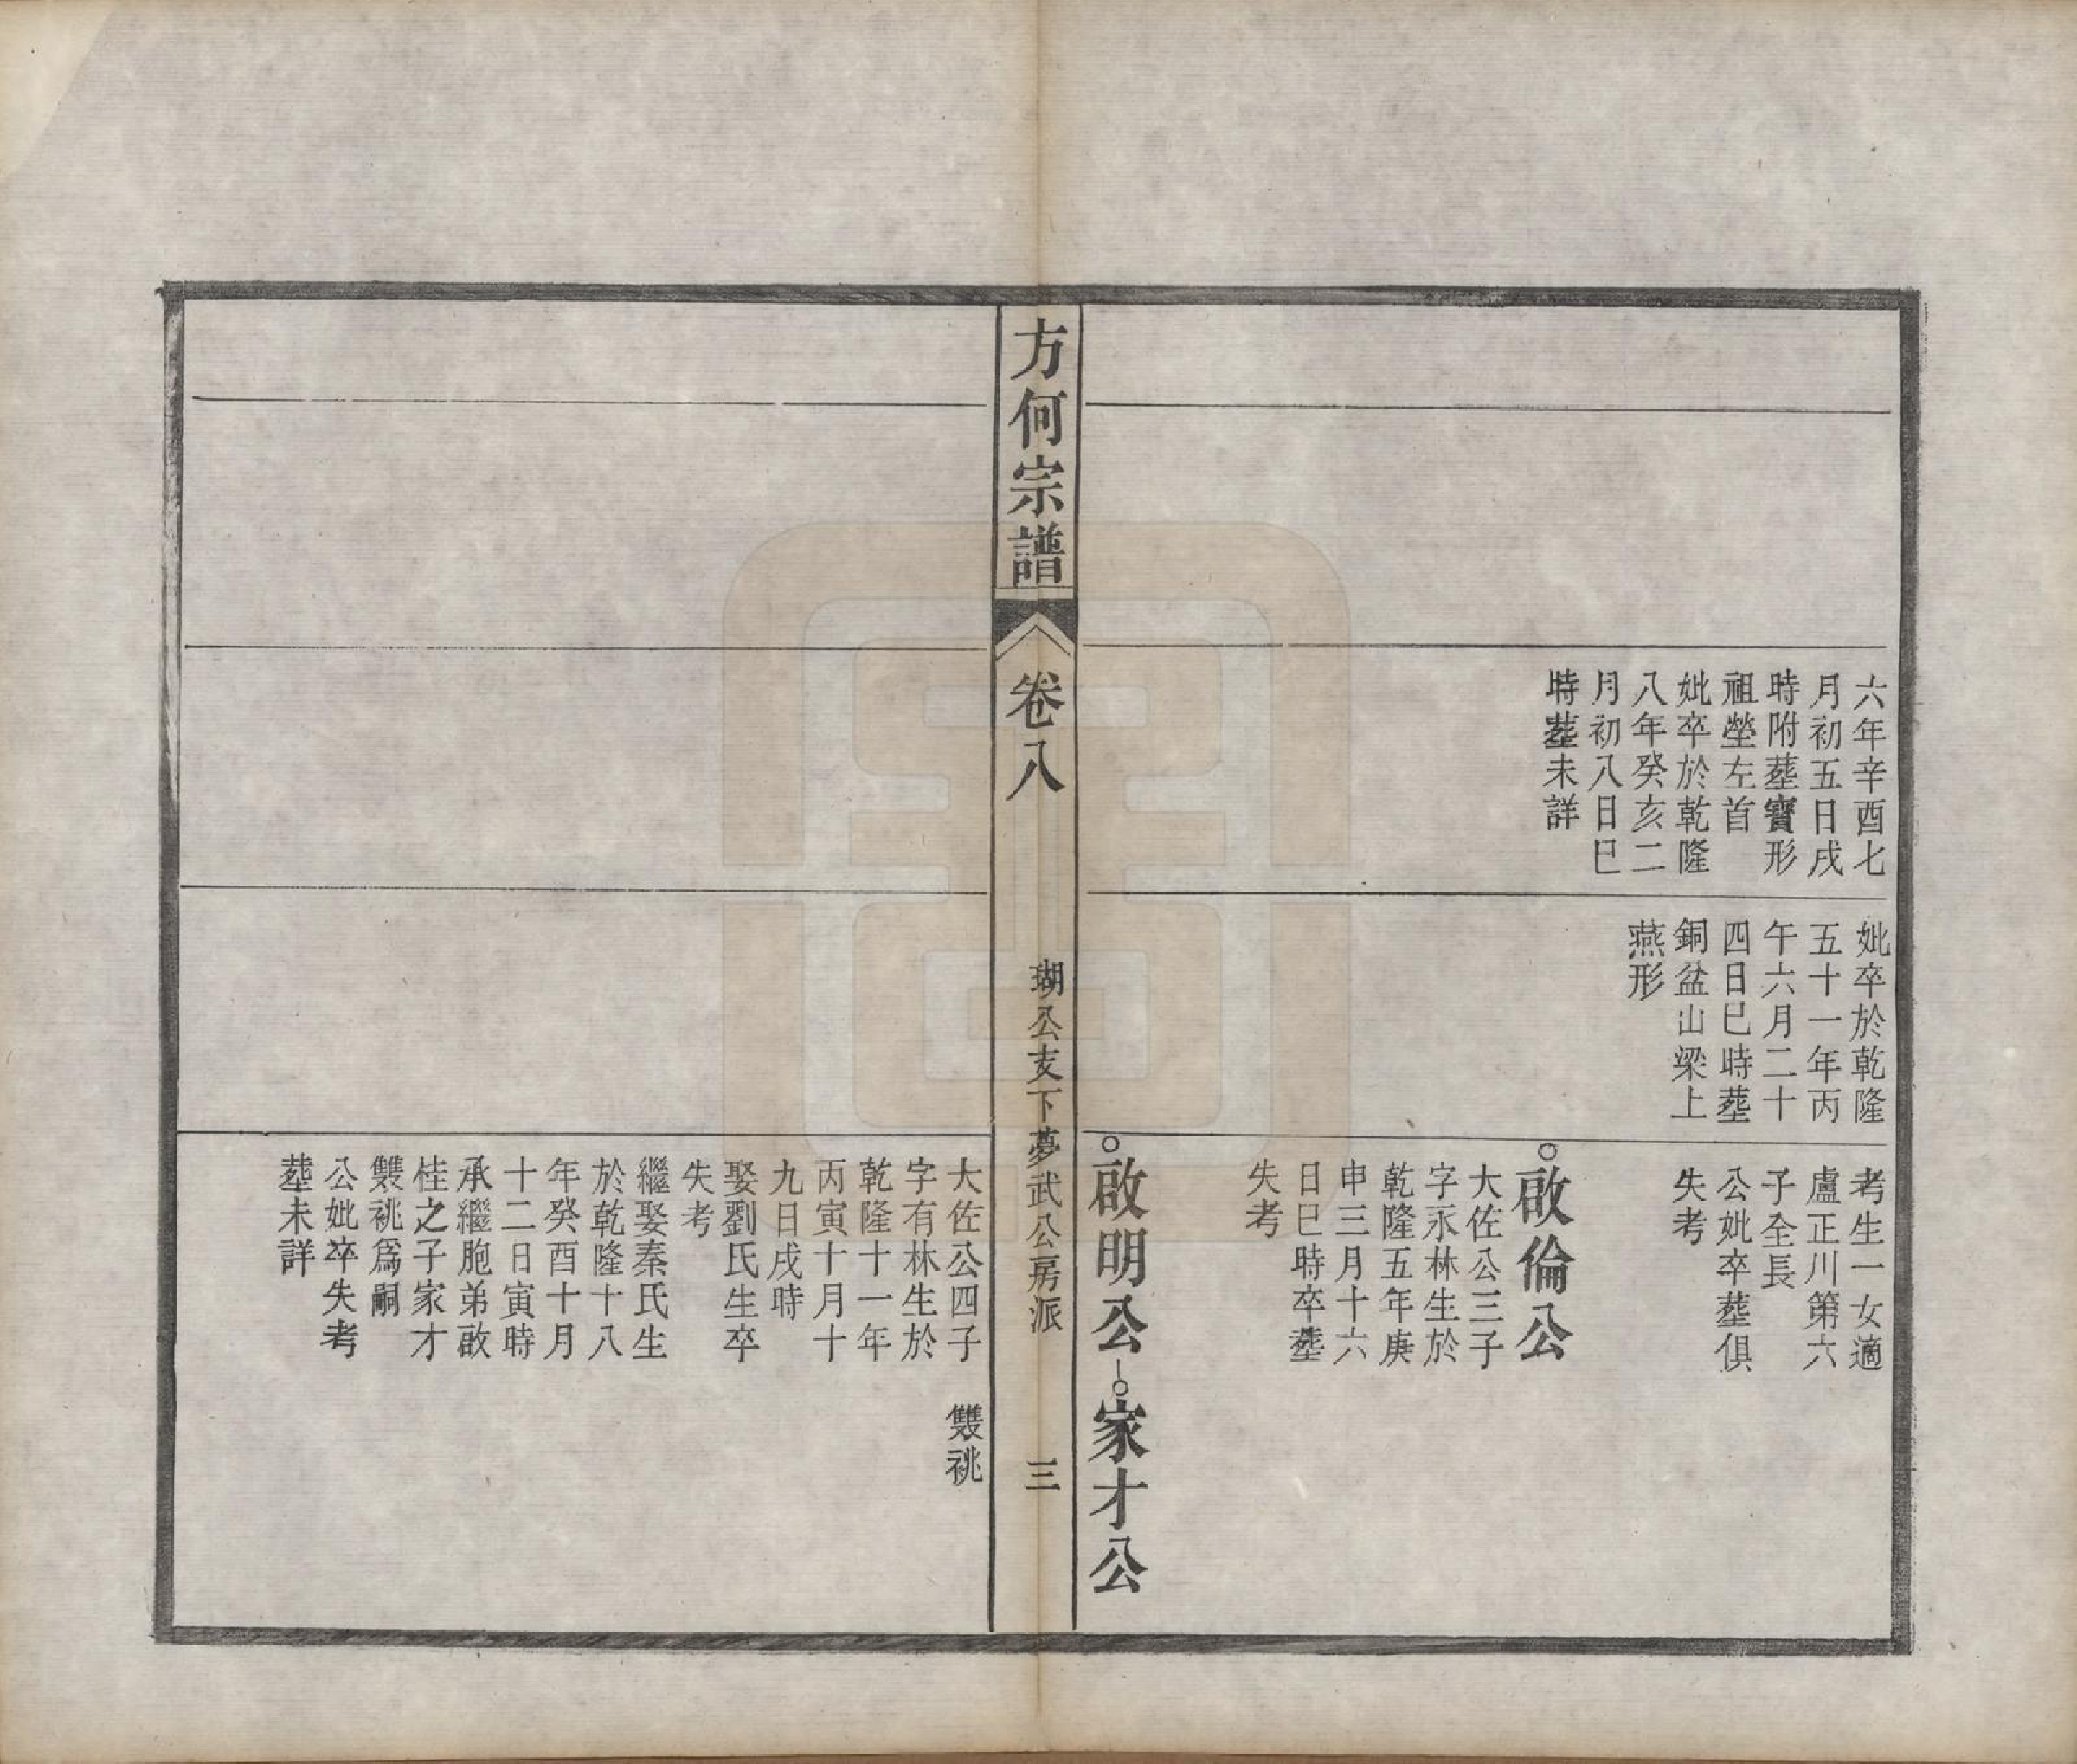 六年辛酉七
月初五日戌
時附塟寶形
祖塋左首
妣卒於乾隆
八年癸亥二
月初八日巳
時塟未詳
妣卒於乾隆
五十一年丙
午六月二十
四日巳時塟
銅盆山梁上
燕形
考生一女適
盧正川第六
子全長
公妣卒塟俱
失考
啟倫公
大佐公三子
字永林生於
乾隆五年庚
申三月十六
日巳時卒塟
失考
啟明公
家才公
方何宗譜
卷八
瑚公支下夢武公房派
三
大佐公四子
字有林生於
乾隆十一年
丙寅十月十
九日戌時
娶劉氏生卒
失考
繼娶秦氏生
於乾隆十八
年癸酉十月
十二日寅時
承繼胞弟啟
桂之子家才
雙祧爲嗣
公妣卒失考
塟未詳
雙祧